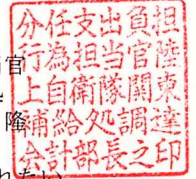 官
隆
分任支出負担
行為担当官陸
上自衛隊關東
補給処調達
会計部長之印